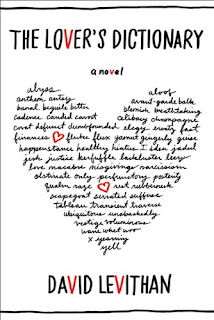 THE LOVER'S DICTIONARY
a novel
abyss aloof
anthem antsy avant-garde balk
banal beguile better blemish breathtaking
cadence candid caveat celibacy champagne
covet defunct dumbfounded elegy erratic fast
finances fluke flux gamut gingerly guise
happenstance healthy hiatus I idea jaded
jerk justice kerfuffle lackluster leery
love macabre misgivings narcissism
obstinate only perfunctory posterity
qualm raze rest rubberneck
scapegoat serrated suffuse
tableau transient traverse
ubiquitous unabashedly
vestige voluminous
wane what woo
x yearning
yell
DAVID LEVITHAN